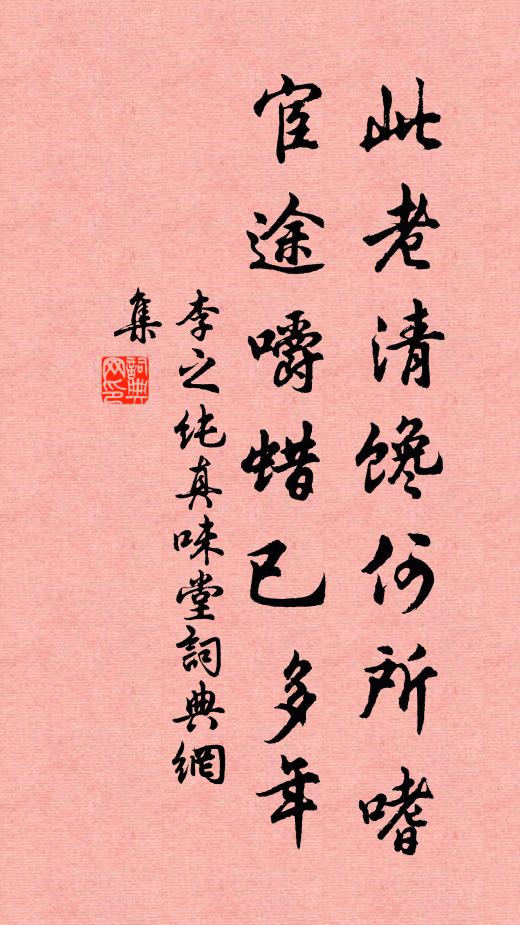 此老清馋何所嗜
宦途嚼蜡已多年
李之纯真味堂詞典網
集
詞典
网印